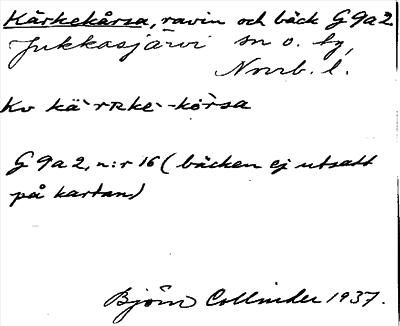 Kärkekårsa, ravin och bäck G9a2
Jukkasjärvi sn o. by,
Norrb. l.
Kv kä`rrke`-kòrsa
G 9a2, n:r 16 (bäcken ej utsatt
på kartan)
Björn Collinder 1937.